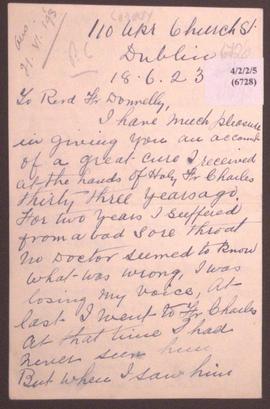 110 Upr Church St.
Dublin
18.6.23
4/2/2/5
(6728)
To Revd Fr Donnelly,
I have much pleasure
in giving you an account
of a great cure I received
at the hands of Holy Fr Charles
thirty three years ago.
For two years I suffered
from a bad sore throat
No Doctor seemed to know
what was wrong, I was
losing my voice, At
last I went to Fr Charles
At that time I had
never seen him
But when I saw him